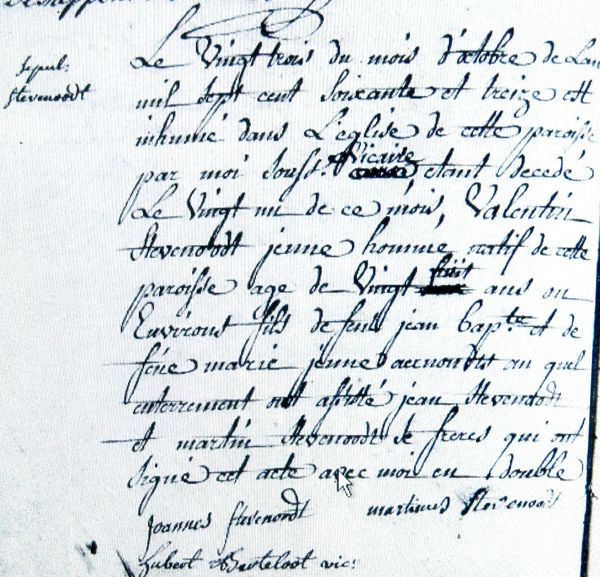 Sepul:
Stevenoodt
Le Vingt trois du mois d'octobre de Lan
mil sept cent soixante et treize est
inhumé dans L'eglise de cette paroisse
par moi souss. Vicaire etant decedé
Le Vingt un de ce mois, Valentin
Stevenoodt jeune homme natif de cette
paroisse age de Vingt huit ans ou
Environs fils de feus jean bapte et de
feüe marie jenne au quel
enterrement ont assisté jean Stevenoodt
et martin Stevenoodt se freres qui ont
signé cet acte avec moi en double
Joannes Stevenoodt martinus Stevenoodt
hubert vic: